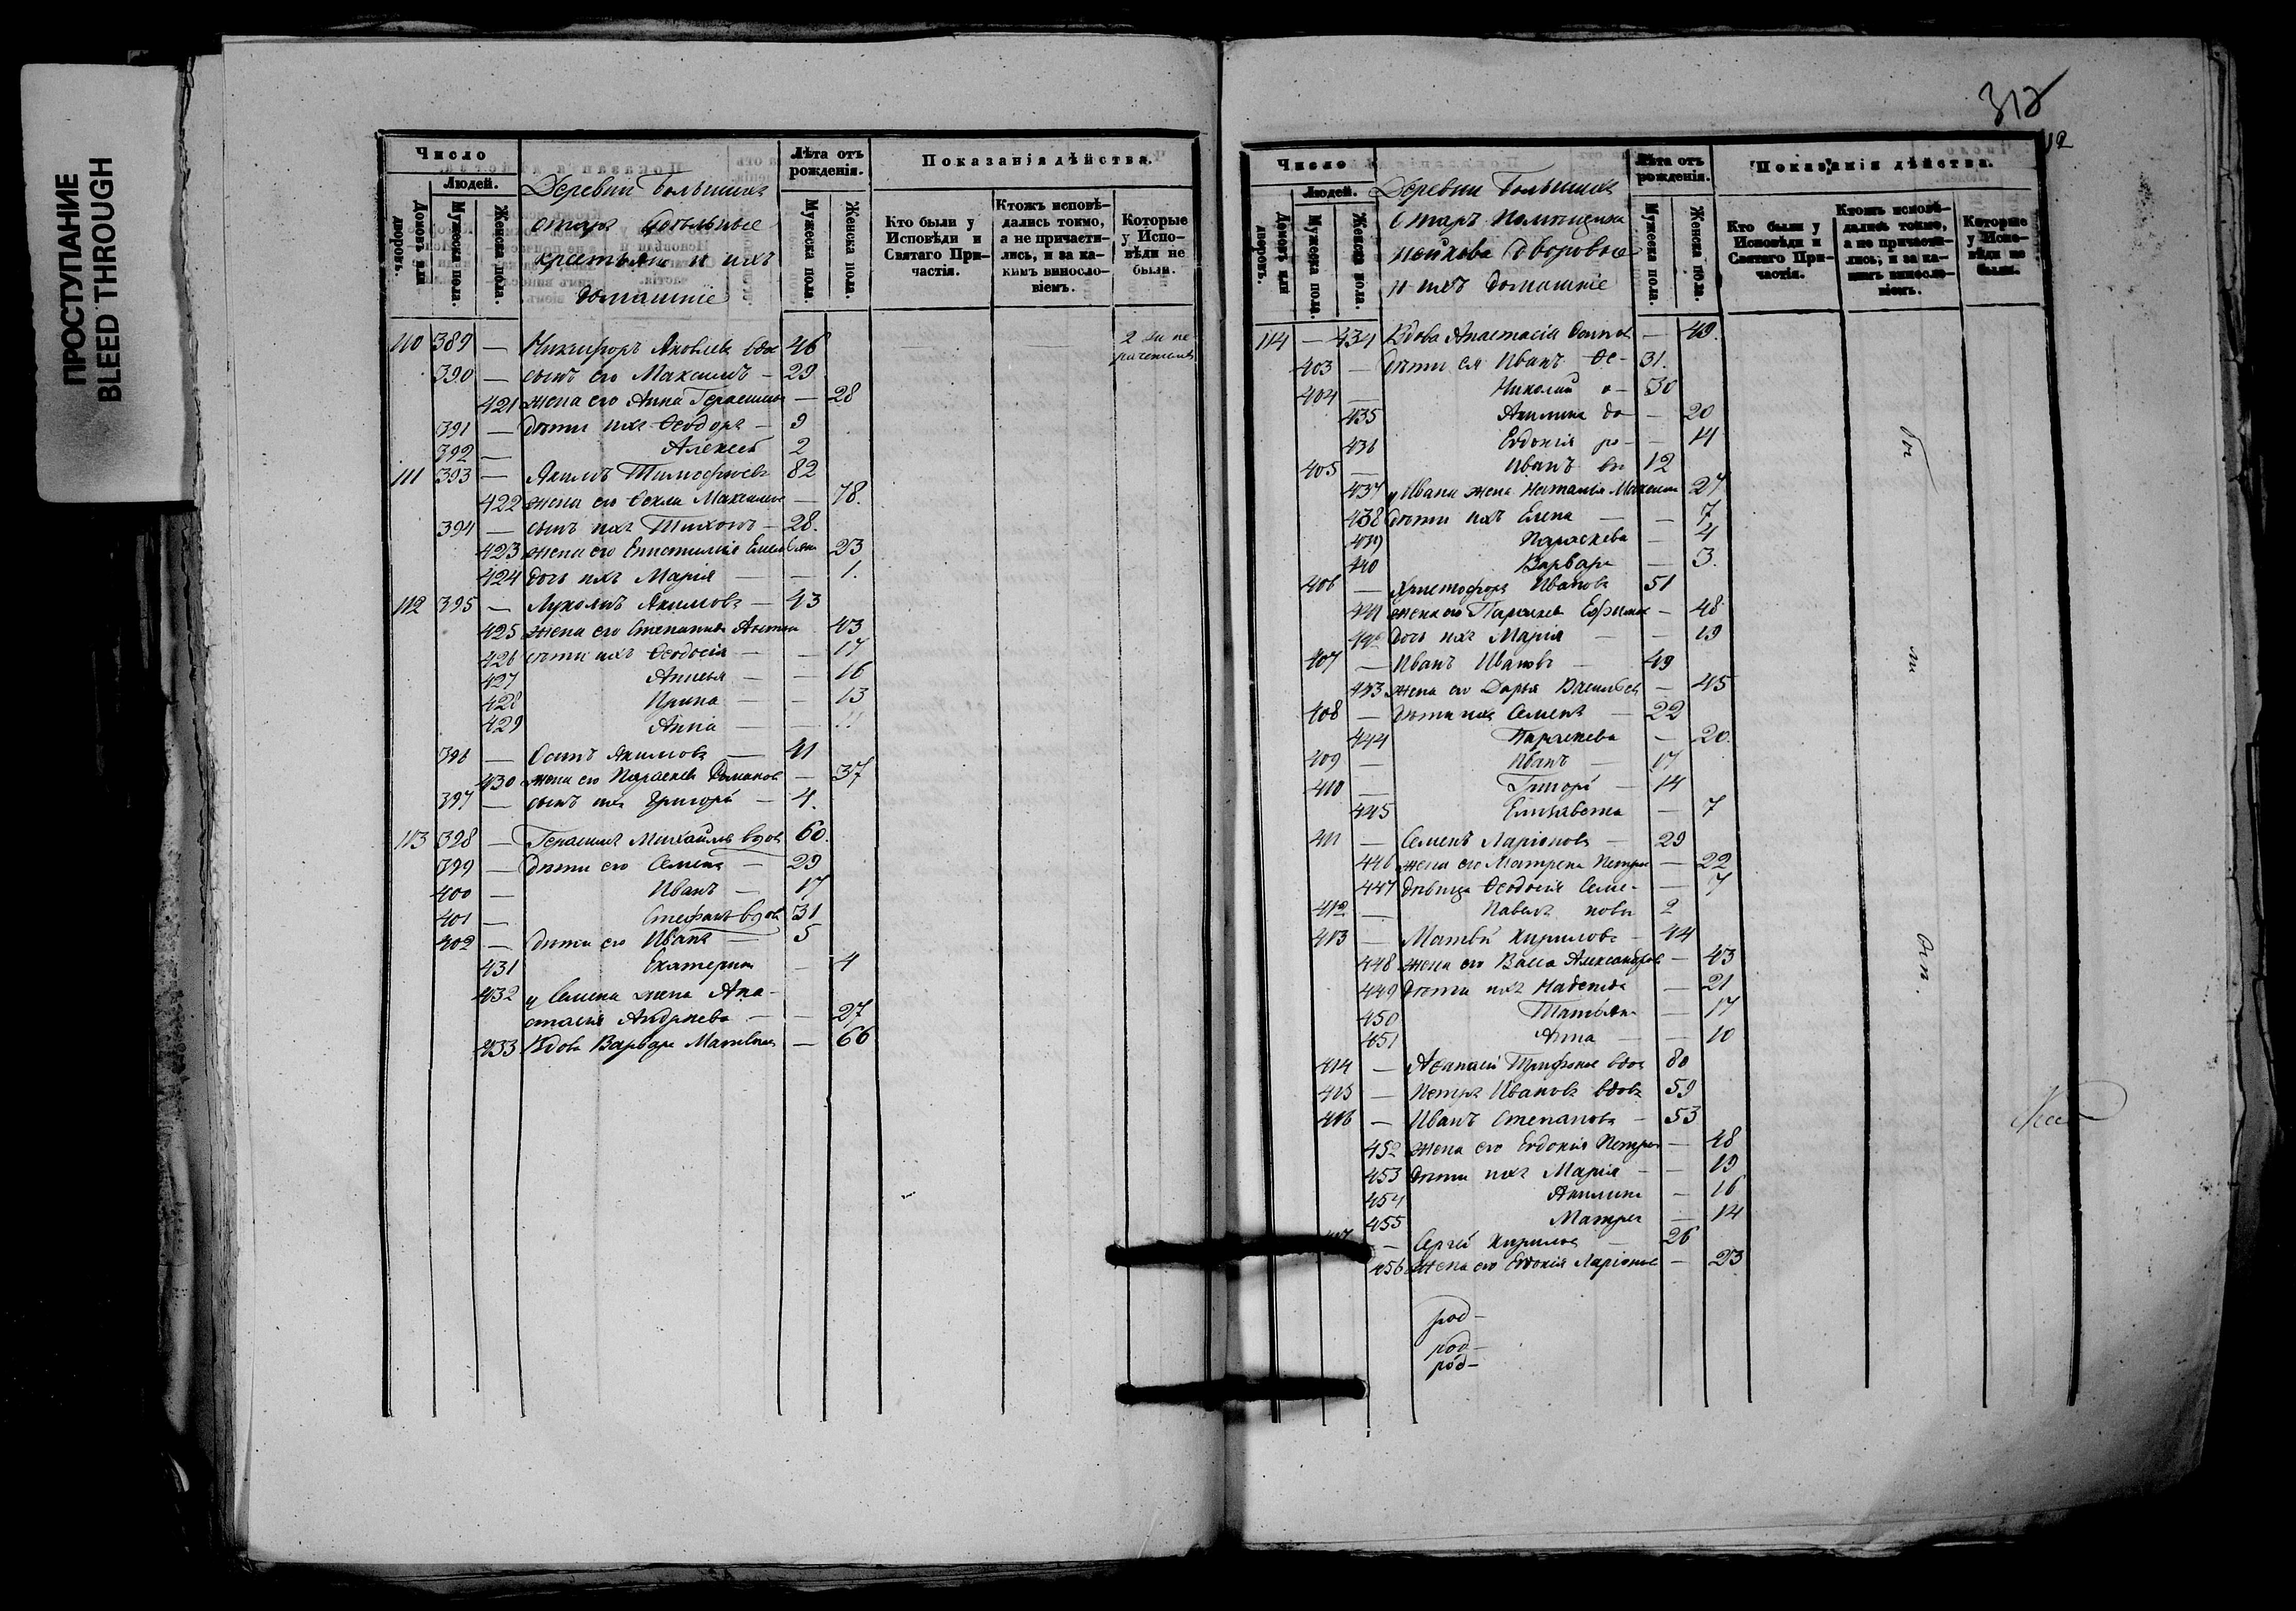 ПРОСТУПАНИЕ
BLEED THROUGH
Число
Людей.
Домовъ или дворовъ.
Мужеска пола.
Женска пола.
Деревни Большихъ
крестьяне и ихъ
домашніе
Лѣта отъ рожденія.
Мужеска пола
Женска пола.
Показанія дѣйства.
Кто были у Исповѣди и Святаго При-частія.
Ктожъ исповѣ-дались токмо, а не причасти-лись, и за ка-кимъ винословіемъ.
Которые у Испо-вѣди не были.
110 389 — Никифоръ Яковлевъ вдов 46
390 — сынъ его Максимъ — 29
421 жена его Анна Герасимов — 28
391 — дѣти ихъ Ѳеодоръ — 9
392 — Алексѣй 2
111 393 — Акимъ Тимофѣевъ 82
422 жена его Ѳекла Максимов — 78.
394 — сынъ ихъ Тихонъ — 28.
423 жена его Епистимія Емельянов 23
424 дочь ихъ Марія — — 1.
112 395 — Акимовъ — 43
425 жена его Степанида 43
426 дѣти ихъ Ѳеодосія — — 17
427 — — 16
428 Ирина — — 13
429 Анна — — 11
396 — Осипъ Акимовъ — 41
430 жена его Параскева Романов — 37
397 — сынъ ихъ Григорій — 4.
113 398 — Герасимъ Михайловъ вдов 60.
399 — дѣти его Семенъ — 29
400 — Иванъ — 17
401 — Стефанъ вдов 31
402 — дѣти его Иванъ — 5
431 Екатерина — 4
432 у Семена жена Ана-
стасія Андреева — — 27
433 Вдова Варвара Матвѣева — 66
312
Число
Людей.
Домовъ или дворовъ.
Мужеска пола.
Женска пола.
Деревни Большихъ
Старъ помѣщика
дворовые
и ихъ домашніе
Лѣта отъ рожденія.
Мужеска пола.
Женска пола.
Показанія дѣйства.
Кто были у Исповѣди и Святаго При-частія.
Ктожъ исповѣ-дались токмо, а не причасти-лись, и за ка-кимъ винословіемъ.
Которые у Испо-вѣди не были.
114 — 434 Вдова Анастасія Осипов — 49.
403 — дѣти ея Иванъ Ѳе- 31.
404 — Николай о- 30
435 Акилина до- — 20
436 Евдокія ро- — 14
405 — Иванъ вы 12
437 у Ивана жена Наталья Максим 27
438 дѣти ихъ Елена — — 7
439 Параскева — 4
440 Варвара — 3.
406 — Христофоръ Ивановъ 51
441 жена его Параскева Ефимов — 48
442 дочь ихъ Марія — — 19
407 — Иванъ Ивановъ — 49
443 жена его Дарья Васильев — 45
408 — дѣти ихъ Семенъ — 22
444 Параскева — 20.
409 — Иванъ — 17
410 — Григорій — 14
445 Елизавета — 7
411 — Семенъ Ларіоновъ — 29
446 жена его Матрена Петров — 22
447 дѣвица Ѳеодосія Семе- — 7
412 — Павелъ новы 2
413 — Матвѣй Кириловъ — 44
448 жена его Васса Александров — 43
449 дѣти ихъ Надежда — 21
450 Татьяна — 17
451 Анна — — 10
414 — Аѳанасій Трифонов вдов 80
415 — Петръ Ивановъ вдовъ 59
416 — Иванъ Степановъ — 53
452 жена его Евдокія Петров — 48
453 дѣти ихъ Марія — — 19
454 Акилина — 16
455 Матрен — 14
417 — Сергѣй Кирилов — 26
456 жена его Евдокія Ларіонов — 23
род-
род-
род-
бы
ли